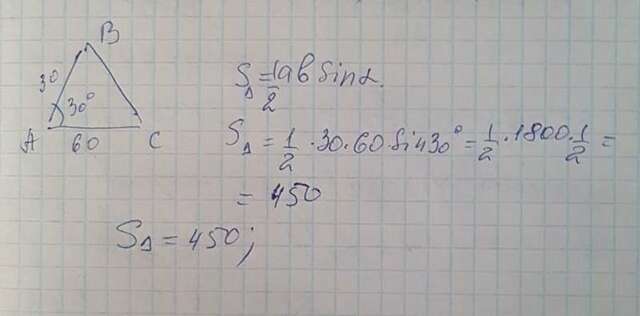 B
30
30°
A 60 C
S△ = 1/2 ab sin α.
S△ = 1/2 · 30 · 60 · sin 30° = 1/2 · 1800 · 1/2 =
= 450
S△ = 450;